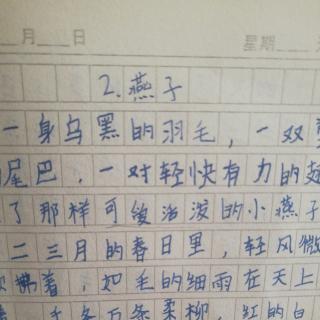 月 日 星期
2.燕子
一身乌黑的羽毛,一双
尾巴,一对轻快有力的
了那样可 活泼的小燕子
二三月的春日里,轻风微
拂着,如毛的细雨在天上
千条万条柔柳,红的白